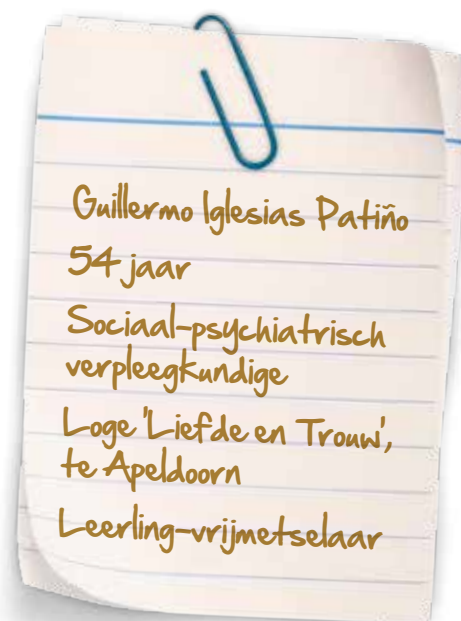 Guillermo Iglesias Patiño
54 jaar
Sociaal-psychiatrisch
verpleegkundige
Loge 'Liefde en Trouw',
te Apeldoorn
Leerling-vrijmetselaar